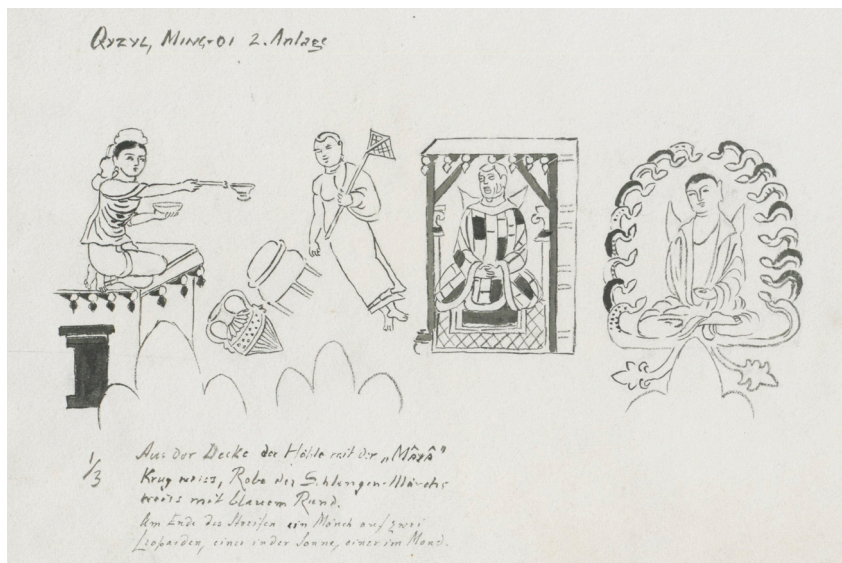 Qyzyl, Ming-Oi 2. Anlage
1/3
Aus der Decke der Höhle mit der „Mâyâ"
Krug weiss, Robe des Schlangen-Mönchs
weiss mit blauem Rand.
Am Ende des Streifen ein Mönch auf zwei
Leoparden, einer in der Sonne, einer im Mond.